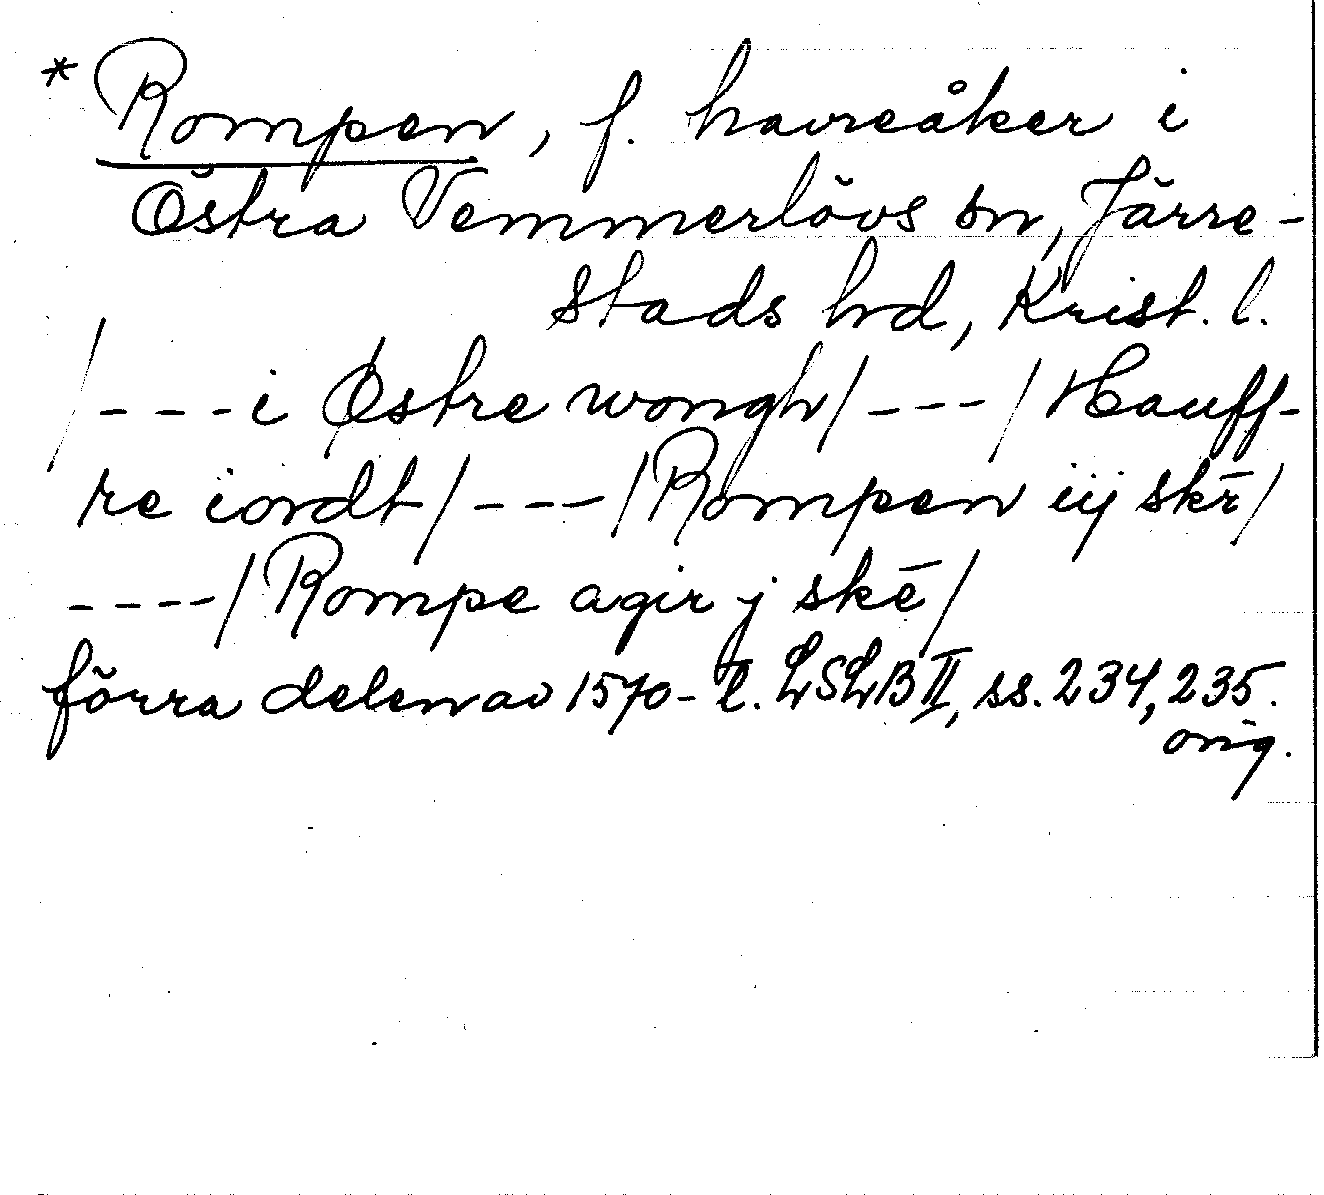 * Rompen, f. havreåker i
Östra Vemmerlövs sn, Järre-
stads hd, Krist. l.
/---i Østre wongh/---/Hauff-
re iordt/---/Rompen iij skē/
----/Rompe agir j skē/
förra delen av 1570-t. LSLB II, ss. 234, 235.
orig.